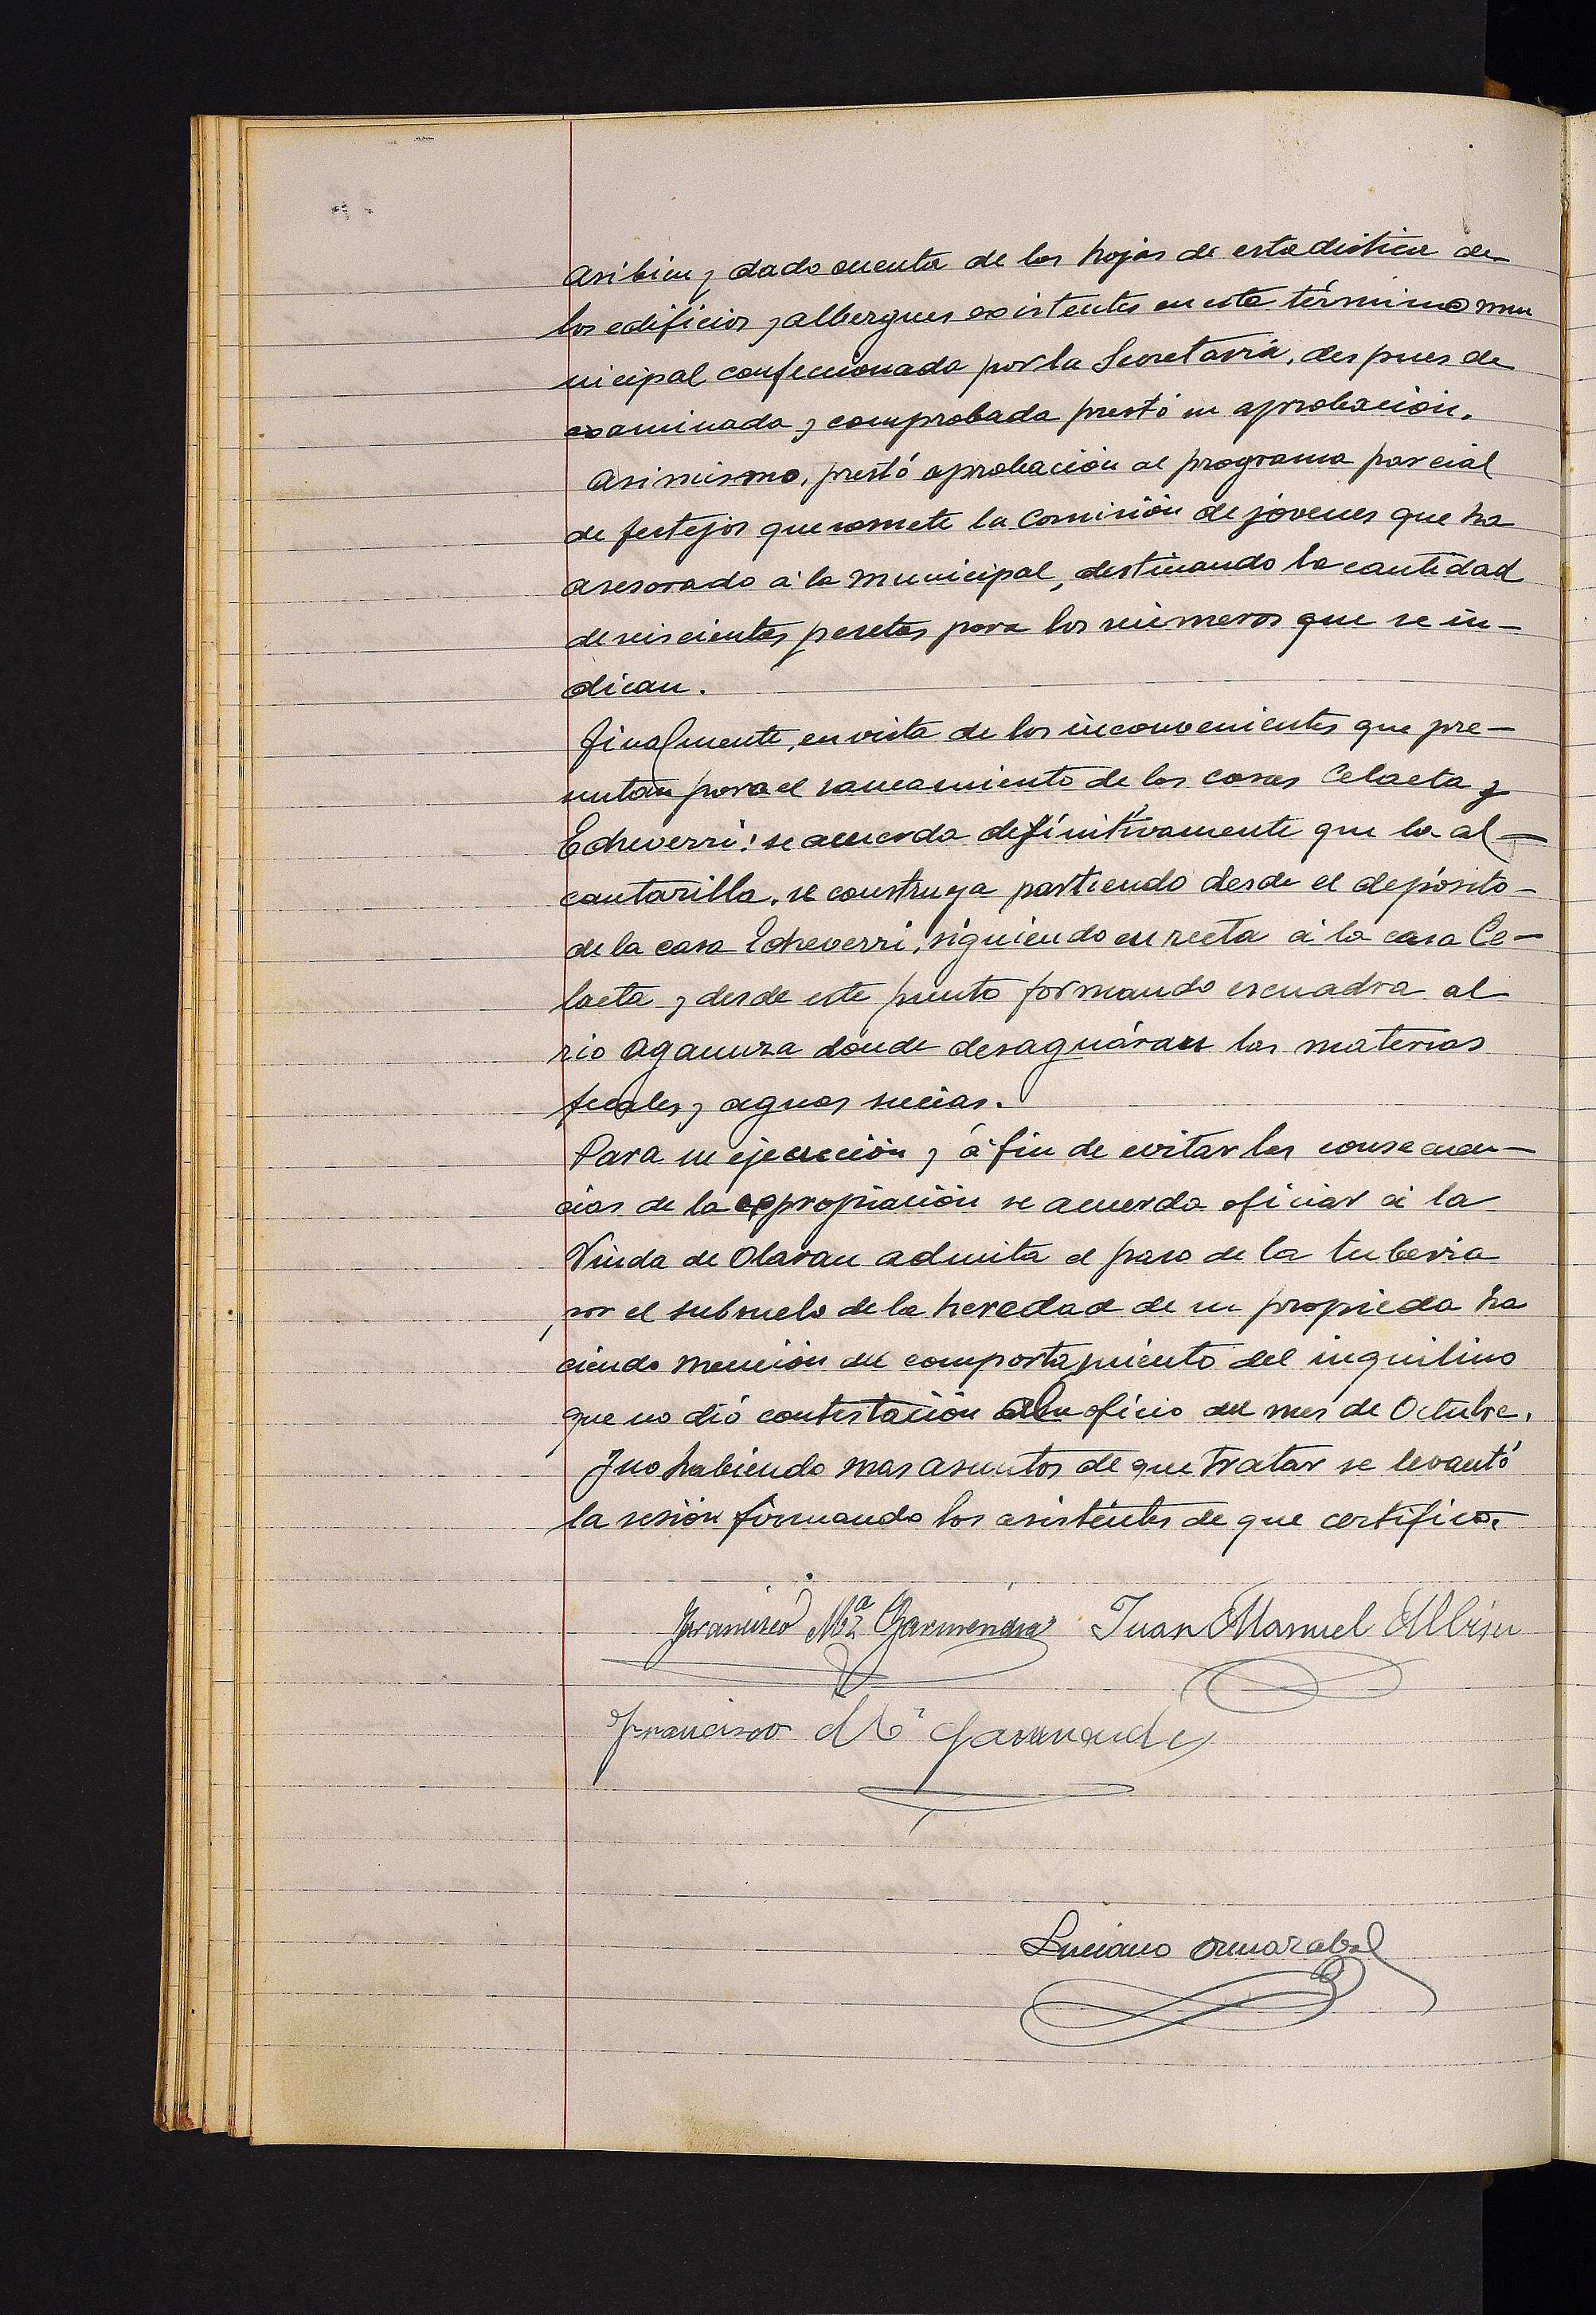 Asi bien y dado cuenta de las hojas de estadistica de
los edificios y albergues existentes en este término mu
nicipal confeccionada por la Secretaria, despues de
examinada y comprobada prestó su aprobación.
Asimismo, prestó aprobación al programa parcial
de festejos que somete la Comisión de jóvenes que ha
asesorado á la Municipal, destinando la cantidad
de seiscientas pesetas para los números que se in-
dican.
Finalmente, en vista de los inconvenientes que pre-
sentan para el saneamiento de las casas Celaeta y
Echeverri: se acuerda definitivamente que la al-
cantarilla, se construya partiendo desde el depósito-
de la casa Echeverri, siguiendo en recta á la casa Ce-
laeta y desde este punto formando escuadra al
rio Agaunza donde desaguáran las materias
fecales y aguas sucias.
Para su ejecución y á fin de evitar las consecuen-
cias de la expropiación se acuerda oficiar á la
Viuda de Olaran admita el paso de la tuberia
por el subsuelo de la heredad de su propieda ha
ciendo mención del comportamiento del inquilino
que no dió contestación al oficio del mes de Octubre.
Y no habiendo mas asuntos de que tratar se levantó
la sesión firmando los asistentes de que certifico.
Francisco Mª Garmendia Juan Manuel Albisu
Francisco Mª Garmendia
Luciano Ormazabal